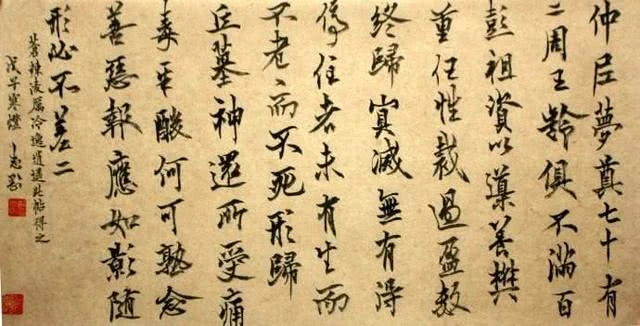 仲尼夢奠七十有
二周王齡俱不滿百
彭祖資以導養樊
重任性裁過盈數
終歸冥滅無有得
停住者未有生而
不老〻而不死形歸
丘墓神還所受痛
毒辛酸何可熟念
善惡報應如影隨
形必不差二
此帖得之
寒燈